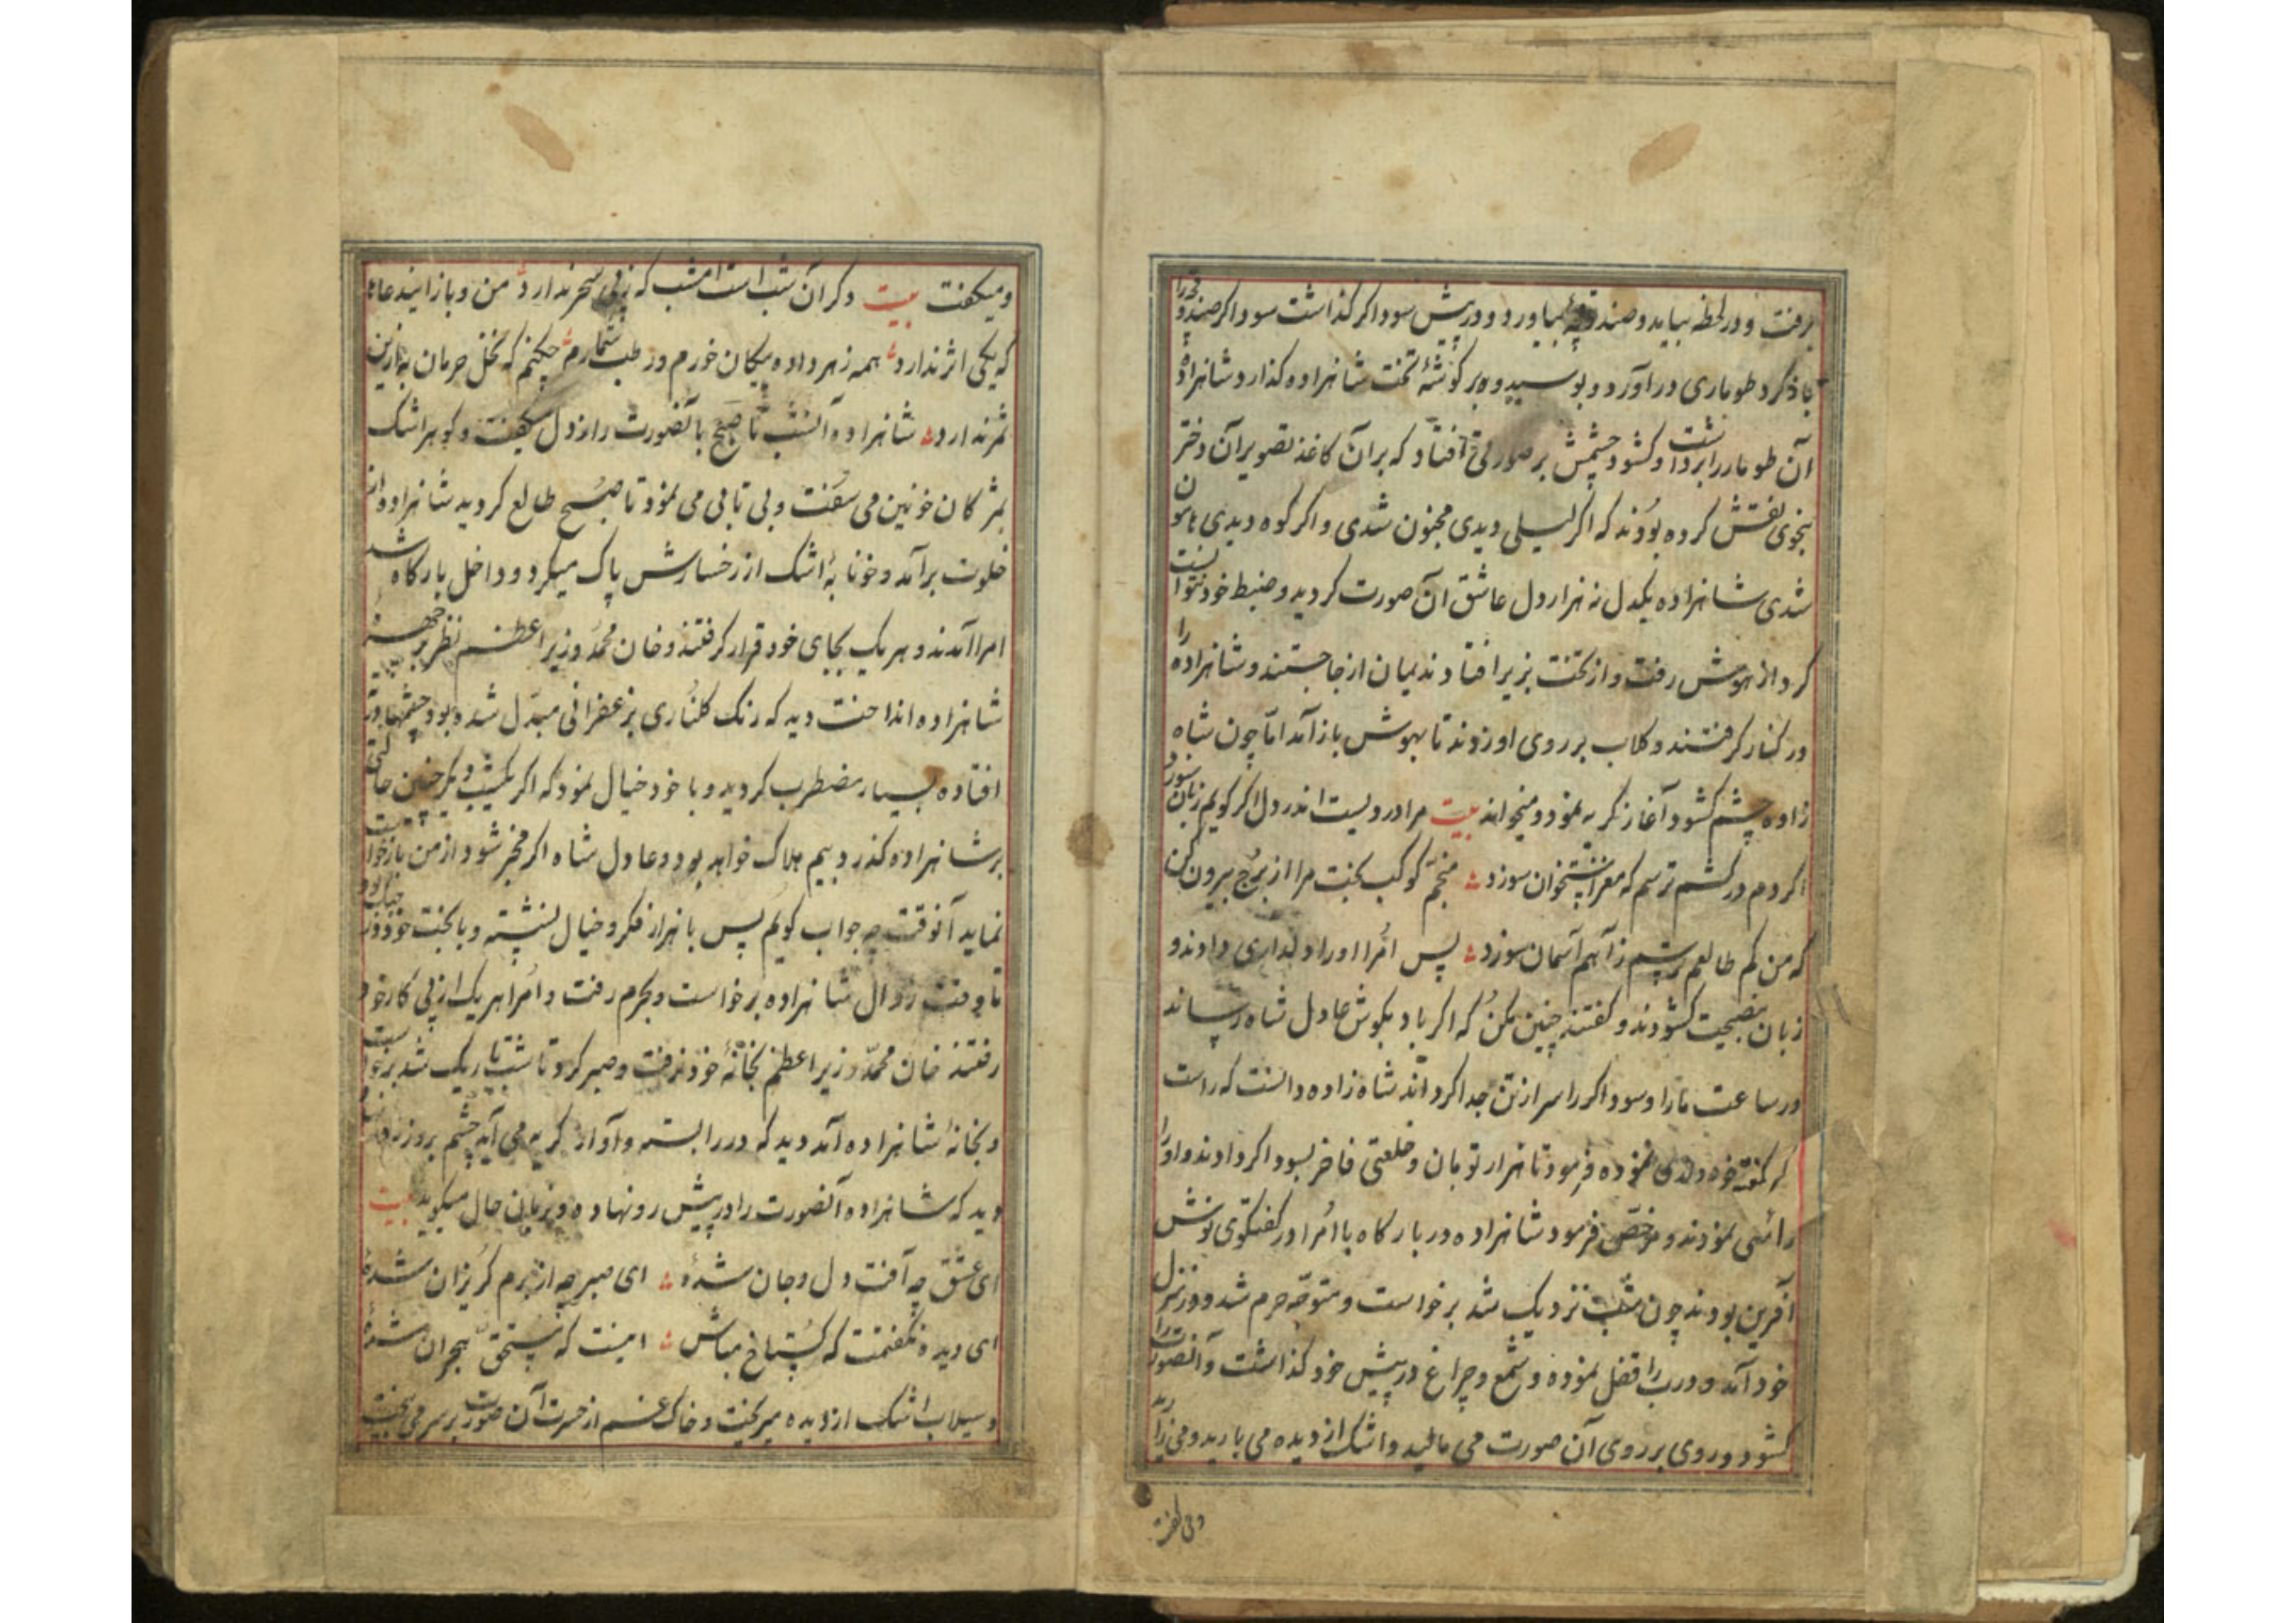 برفت و در لحظه بیاید و صندوقچهٔ بیاورد و در پیش سوداکر کذاشت سوداکر صندوقچه را
باز کرد طوماری در آورد و بوسید و بر کوشهٔ تخت شاهزاده کذارد شاهزاده
آن طومار را برداشت و کشود چشمش بر صورتی افتاد که بر آن کاغذ تصویر آن دختر
بنحوی نقش کرده بودند که اکر لیلی دیدی مجنون شدی و اکر کوه دیدی هامون
شدی شاهزاده یکدل نه هزار دل عاشق آن صورت کردید و ضبط خود نتوانست
کرد از هوش رفت و از تخت بزیر افتاد ندیمان از جا جستند و شاهزاده را
در کنار کرفتند و کلاب بر روی او زدند تا بهوش باز آمد امّا چون شاه
زاده چشم کشود آغاز کریه نمود و میخواند بیت مرا دردیست اندر دل اکر کویم زبان سوزد
اکر دم در کشم ترسم که مغز استخوان سوزد منجّم کوکب بخت مرا از برج بیرون کن
که من کم طالعم ترسم ز آهم آسمان سوزد پس امرا او را دلداری دادند و
زبان بنصیحت کشودند و کفتند چنین مکن که اکر باد بکوش عادل شاه رساند
در ساعت ما را و سوداکر را سر از تن جدا کرداند شاه زاده دانست که راست
فرمود تا هزار تومان و خلعتی فاخر بسوداکر دادند و او را
راضی نمودند و مرخّص فرمود شاهزاده در بارکاه با امرا در کفتکوی نوش
آفرین بودند چون شب نزدیک شد برخواست و متوجّه حرم شد و در منزل
خود آمد و درب را قفل نموده و شمع و چراغ در پیش خود کذاشت و آنصورت را
کشود و روی بر روی آن صورت می مالید و اشک از دیده می بارید و می زارید
و میکفت
و میکفت بیت دکر آن شب است امشب که ز پی سحر ندارد من و باز این دعاها
که یکی اثر ندارد همه زهر داده پیکان خورم و رطب شمارم چکنم که نخل حرمان به ازین
ثمر ندارد شاهزاده آنشب تا صبح با آنصورت راز دل میکفت و کوهر اشک
بمژکان خونین می سفت و بی تابی می نمود تا صبح طالع کردید شاهزاده از
خلوت برآمد و خونابهٔ اشک از رخسارش پاک میکرد و داخل بارکاه شد
امرا آمدند و هر یک بجای خود قرار کرفتند و خان محمّد وزیر اعظم نظر بر چهره
شاهزاده انداخت دید که رنک کلناری بزعفرانی مبدّل شده بود و چشمها
افتاده بسیار مضطرب کردید و با خود خیال نمود که اکر یکشب دیکر چنین حالتی
بر شاهزاده کذرد بیم هلاک خواهد بود و عادل شاه اکر مخبر شود از من بازخواست
نماید آنوقت چه جواب کویم پس با هزار فکر و خیال نشسته و با بخت خود در
تا وقت زوال شاهزاده برخواست و بحرم رفت و امرا هر یک از پی کار خود
رفتند خان محمّد وزیر اعظم بخانهٔ خود نرفت و صبر کرد تا شب تاریک شد برخواست
و بخانهٔ شاهزاده آمد دید که در را بسته و آواز کریه می آید چشم بر وزنه
دید که شاهزاده آنصورت را در پیش رو نهاده و بزبان حال میکوید بیت
ای عشق چه آفت دل و جان شدهٔ ای صبر چه از برم کریزان شدهٔ
ای دیده نکفتمت که کستاخ مباش اینست که مستحق هجران شدهٔ
و سیلاب اشک از دیده میریخت و خاک غم از حسرت آن صورت بر سر می بیخت